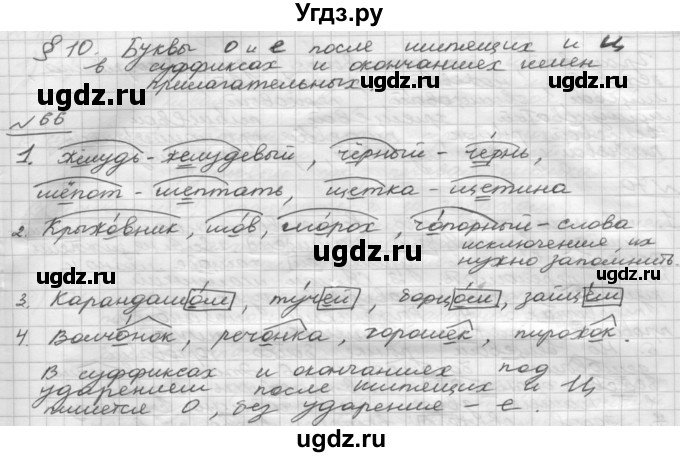 Угдз.ру
§ 10. Буквы о и е после шипящих и ц
в суффиксах и окончаниях имён
прилагательных
ugdz.ru ugdz.ru
№ 66
1. жёлудь - желудевый, чёрный - че́рнь,
шёпот - шептать, щётка - щетина
2. Крыжо́вник, шо́в, шо́рох, чо́порный - слова
исключения, их
нужно запомнить.
ugdz.ru ugdz.ru ugdz.ru
3. Карандашо́м, ту́чей, борцо́м, зайцем
4. Волчо́нок, речо́нка, горошек, пирожо́к.
ugdz.ru ugdz.ru
В суффиксах и окончаниях под
ударением после шипящих и Ц
пишется О, без ударения - е.
ugdz.ru ugdz.ru